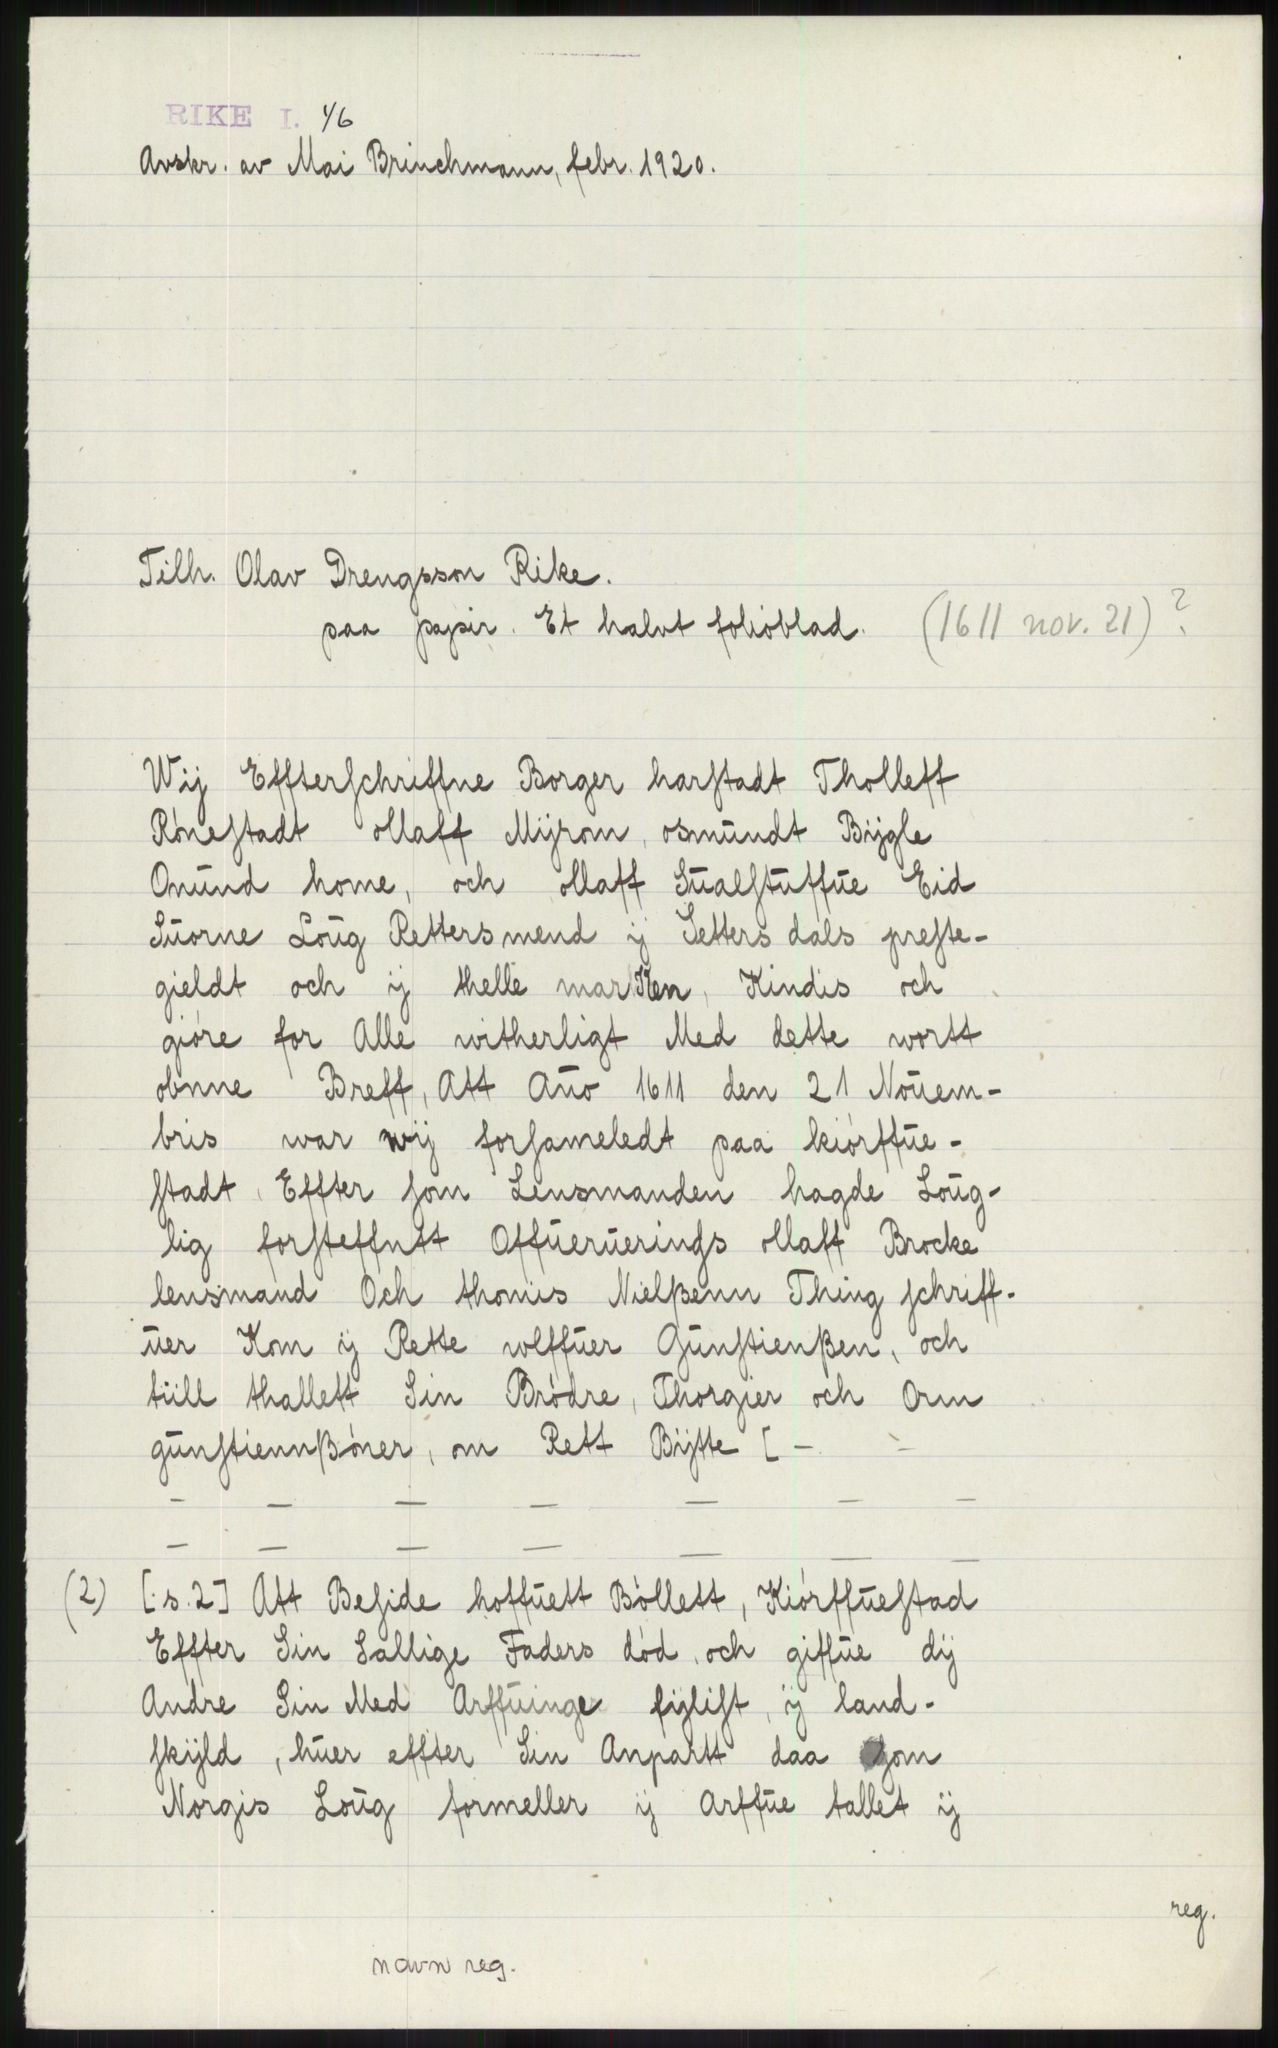 RIKE I. 1/6
Avskr. av Mai Brinchmann, febr. 1920.
Tilh. Olav Drengsson Rike.
paa papir. Et halvt folioblad. (1611 nov. 21)?
Wij Effterschriffne Borger harstadt Tholleff
Rónestadt ollaff Mijrom, osmundt Bijgle
Onund home, och ollaff Sualstuffue Eid
Suorne Loug Rettersmend ij Setters dals preste-
gieldt och ij thelle marken, Kindis och
gióre for Alle witherligt Med dette wortt
obnne Breff, Att Año 1611 den 21 Nouem-
bris war wij forsameledt paa kiórffue-
stadt, Effter som Lensmanden hagde Loug-
lig forsteffntt Offueruerinds ollaff Brocke
lensmand Och thomis Nielßenn Thing schriff-
uer Kom ij Rette wlffuer Gunstienßen, och
tiill thallett Sin Bródre, Thorgier och Orm
gunstiennßóner, om Rett Bijtte [ - -
- - - - - - -
- - - - - - -
(2) [s. 2] Att Beside hoffuett Bóllett, Kiórffuestad
Effter Sin Sallige Faders dód, och giffue dij
Andre Sin Med Arffuinge fijlist, ij land-
skijld, huer effter Sin Anpartt daa som
Norgis Loug formeller ij Arffue tallet ij
reg.
navn reg.